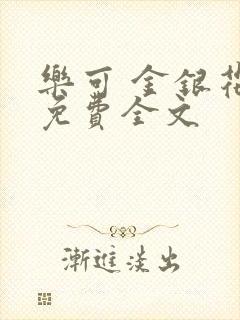 樂可 金銀花
免費全文
漸進淡出